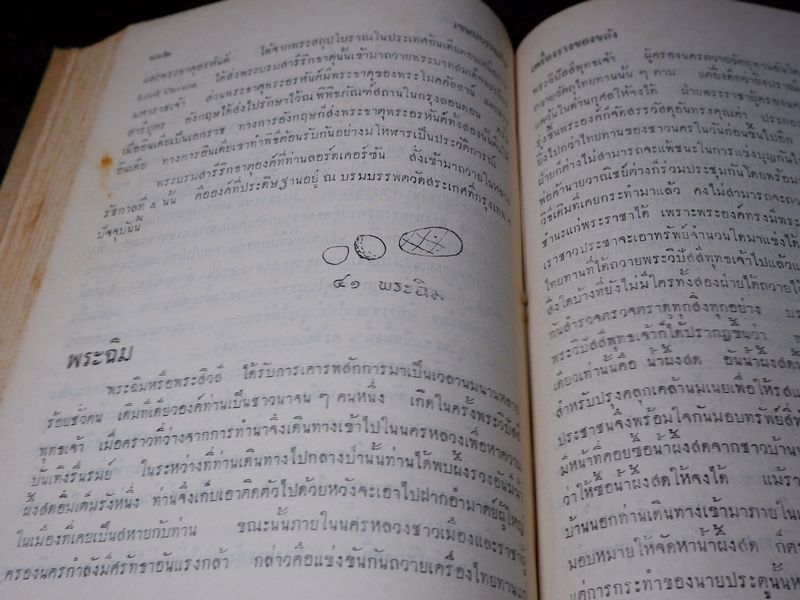 ๒๒๒
และพระธาตุอรหันต์ ได้จากพระสถูปโบราณในประเทศอินเดียตอนเหนือ
Lord Curzon ได้ส่งพระบรมสารีริกธาตุนั้นเข้ามาถวายพระบาทสมเด็จพระ
มหาราชเจ้า ส่วนพระธาตุพระอรหันต์มีพระธาตุของพระโมคคัลลาน์ และพระ
สารีบุตร อังกฤษได้ส่งไปรักษาไว้ณพิพิธภัณฑ์สถานในกรุงลอนดอน
เมื่ออินเดียเป็นเอกราช ทางการอังกฤษก็ส่งพระธาตุพระอรหันต์ทั้งสองนั้นคืนให้
อินเดีย ทางการอินเดียเขาทำพิธีต้อนรับกันอย่างมโหฬารเป็นประวัติการณ์
พระบรมสารีริกธาตุองค์ที่ท่านลอร์ดเคอร์ซัน สั่งเข้ามาถวายในหลวง
รัชกาลที่ ๕ นั้น คือองค์ที่ประดิษฐานอยู่ ณ บรมบรรพตวัดสระเกศที่กรุงเทพ ฯ
ปัจจุบันนี้
๔๑ พระฉิม
พระฉิม
พระฉิมหรือพระสิวลี ได้รับการเคารพสักการมาเป็นเวลานมนานหลาย
ร้อยชั่วคน เดิมทีเดียวองค์ท่านเป็นชาวนาจน ๆ คนหนึ่ง เกิดในครั้งพระวิปัสสี
พุทธเจ้า เมื่อคราวที่ว่างจากการทำนาจึงเดินทางเข้าไปในนครหลวงเพื่อหาความ
บันเทิงรื่นรมย์ ในระหว่างที่ท่านเดินทางไปกลางป่านั้นท่านได้พบผึ้งรวงอันมีน้ำ
ผึ้งสดอิ่มเต็มรังหนึ่ง ท่านจึงเก็บเอาติดตัวไปด้วยหวังจะเอาไปฝากอำมาตย์ผู้ใหญ่
ในเมืองที่เคยเป็นสหายกับท่าน ขณะนั้นภายในนครหลวงชาวเมืองและราชาผู้
ครองนครกำลังมีศรัทธาอันแรงกล้า กล่าวคือแข่งขันกันถวายเครื่องไทยทานแก่
เครื่องรางของขลัง
พระวิปัสสีพุทธเจ้า ผู้ครองนครถวายวัตถุทานอันใด
ถวายวัตถุไทยทานนั้น ๆ ตาม
แคว้นในด้านกุศลให้จงได้ ฝ่ายพระราชาผู้ครองนคร
รุ่งขึ้นพระองค์ก็จัดสรรวัสดุอันทรงคุณค่า ประกอบ
ยิ่งไปกว่าไทยทานของชาวนครในวันก่อนขึ้นไปอีก
ฝ่ายก็ต่างไม่สามารถจะแพ้ชนะในการแข่งบุญกันได้
พ่อค้านายวาณิชย์ต่างก็ร่วมประชุมกันโดยพร้อม
วิธีเดิมที่เคยกระทำมาแล้ว คงไม่สามารถจะถวาย
ชำนะแก่พระราชาได้ เพราะพระองค์ทรงมีพระ
เราชาวประชาจะเอาทรัพย์จำนวนใดมาแข่งได้
ไทยทานที่ได้ถวายพระวิปัสสีพุทธเจ้าไปแล้วแต่
สิ่งใดบ้างที่ยังไม่มีใครทั้งสองฝ่ายได้ถวายให้
กันสำรวจตรวจตราดูทุกสิ่งทุกอย่าง
พระวิปัสสีพุทธเจ้าก็ได้ปรากฏขึ้นว่า
เดียวเท่านั้นคือ น้ำผึ้งสด อันน้ำผึ้งสด
สำหรับปรุงคลุกเคล้านมเนยเพื่อให้รส
ประชาชนจึงพร้อมใจกันมอบทรัพย์สิ่ง
มีหน้าที่คอยซื้อน้ำผึ้งสดจากชาวบ้าน
ว่าให้ซื้อน้ำผึ้งสดให้จงได้ แม้รา
บ้านนอกท่านเดินทางเข้ามาภายในเมือง
มอบหมายให้จัดหาน้ำผึ้งสด ก็ตรง
แต่การกระทำของนายประตูนั้น